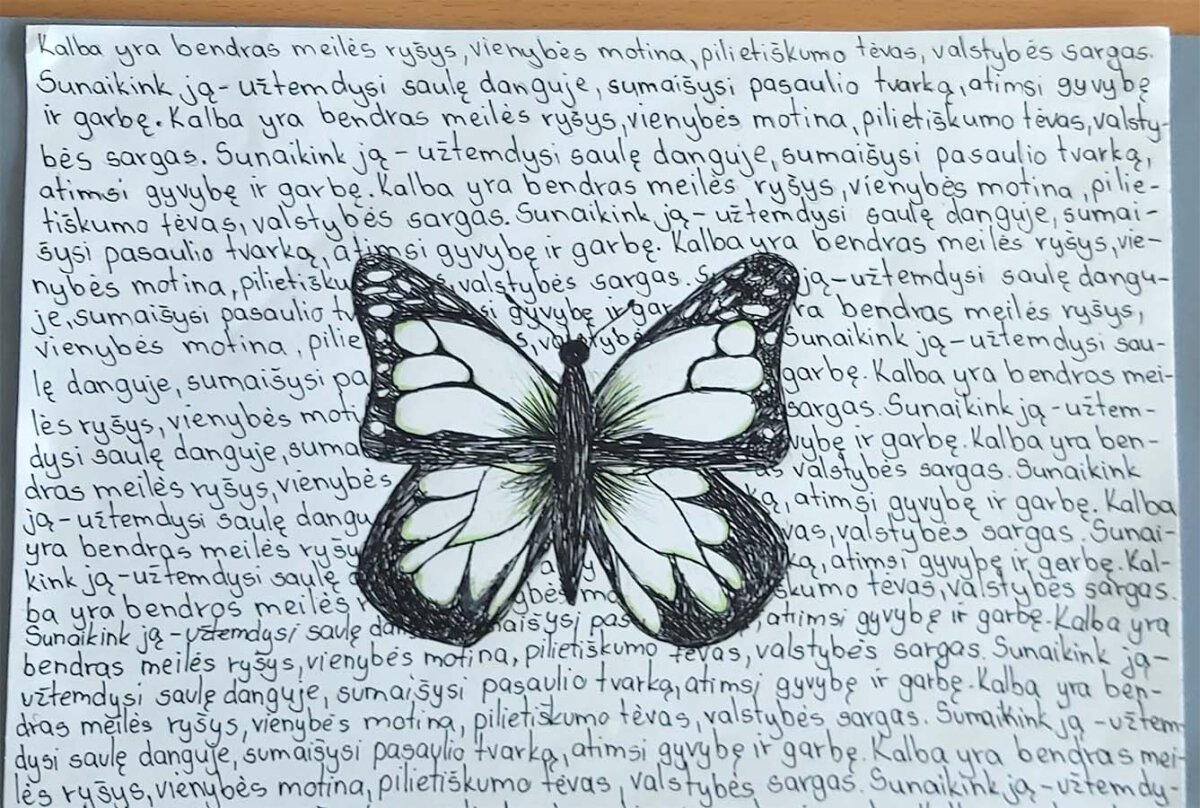 Kalba yra bendras meilės ryšys, vienybės motina, pilietiškumo tėvas, valstybės sargas.
Sunaikink ją - užtemdysi saulę danguje, sumaišysi pasaulio tvarką, atimsi gyvybę
ir garbę. Kalba yra bendras meilės ryšys, vienybės motina, pilietiškumo tėvas, valsty-
bės sargas. Sunaikink ją - užtemdysi saulę danguje, sumaišysi pasaulio tvarką,
atimsi gyvybę ir garbę. Kalba yra bendras meilės ryšys, vienybės motina, pilie-
tiškumo tėvas, valstybės sargas. Sunaikink ją - užtemdysi saulę danguje, sumai-
šysi pasaulio tvarką, atimsi gyvybę ir garbę. Kalba yra bendras meilės ryšys, vie-
nybės motina, pilietišku valstybės sargas. S ją - užtemdysi saulę dangu-
je, sumaišysi pasaulio tv si gyvybę ir gar ra bendras meilės ryšys,
vienybės motina, pilie s, valstybė Sunaikink ją - užtemdysi sau-
lę danguje, sumaišysi pa garbę. Kalba yra bendras mei-
lės ryšys, vienybės moti sargas. Sunaikink ją - užtem-
dysi saulę danguje, suma vybę ir garbę. Kalba yra ben-
dras meilės ryšys, vienybės as valstybės sargas. Sunaikink
ją - užtemdysi saulę dangu ką, atimsi gyvybę ir garbę. Kalba
yra bendras meilės ryšu vas, valstybės sargas. Sunai-
kink ją - užtemdysi saulę ką, atimsi gyvybę ir garbę. Kal-
ba yra bendros meilės ybės mo tėvas, valstybės sargas.
Sunaikink ją - užtemdysi saulę da aišysi pas , atimsi gyvybę ir garbę. Kalba yra
bendras meilės ryšys, vienybės motina, pilietiškumo tėvas, valstybės sargas. Sunaikink ją -
užtemdysi saulę danguje, sumaišysi pasaulio tvarką, atimsi gyvybę ir garbę. Kalba yra ben-
dras meilės ryšys, vienybės motina, pilietiškumo tėvas, valstybės sargas. Sunaikink ją - užtem
dysi saulę danguje, sumaišysi pasaulio tvarką, atimsi gyvybę ir garbę. Kalba yra bendras mei-
lės ryšys, vienybės motina, pilietiškumo tėvas, valstybės sargas. Sunaikink ją - užtemdy-